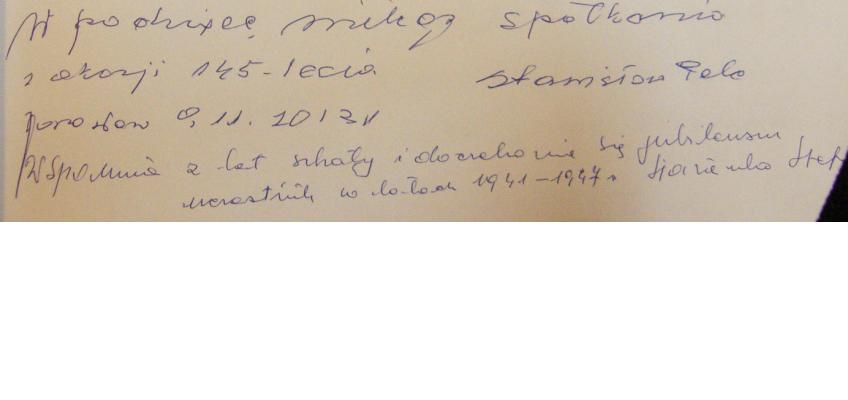 W podzięce miłego spotkania
z okazji 145-lecia Stanisław
Jarosław 9.11.2013r
Wspomnie z lat szkoły i doczekanie się jubileuszu
uczestnik w latach 1941-1947r.